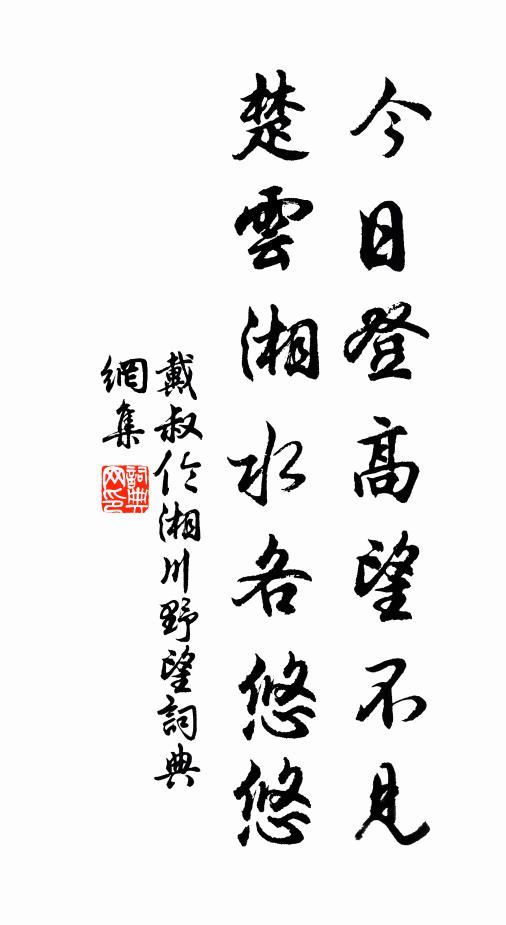 今日登高望不見
楚雲湘水各悠悠
戴叔伦湘川野望詞典
網集
詞典網印